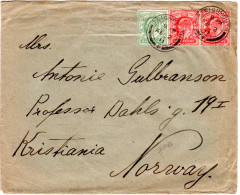 Mrs.
Antonie Gulbranson
Professor Dahls. g. 19 I
Kristiania
Norway.